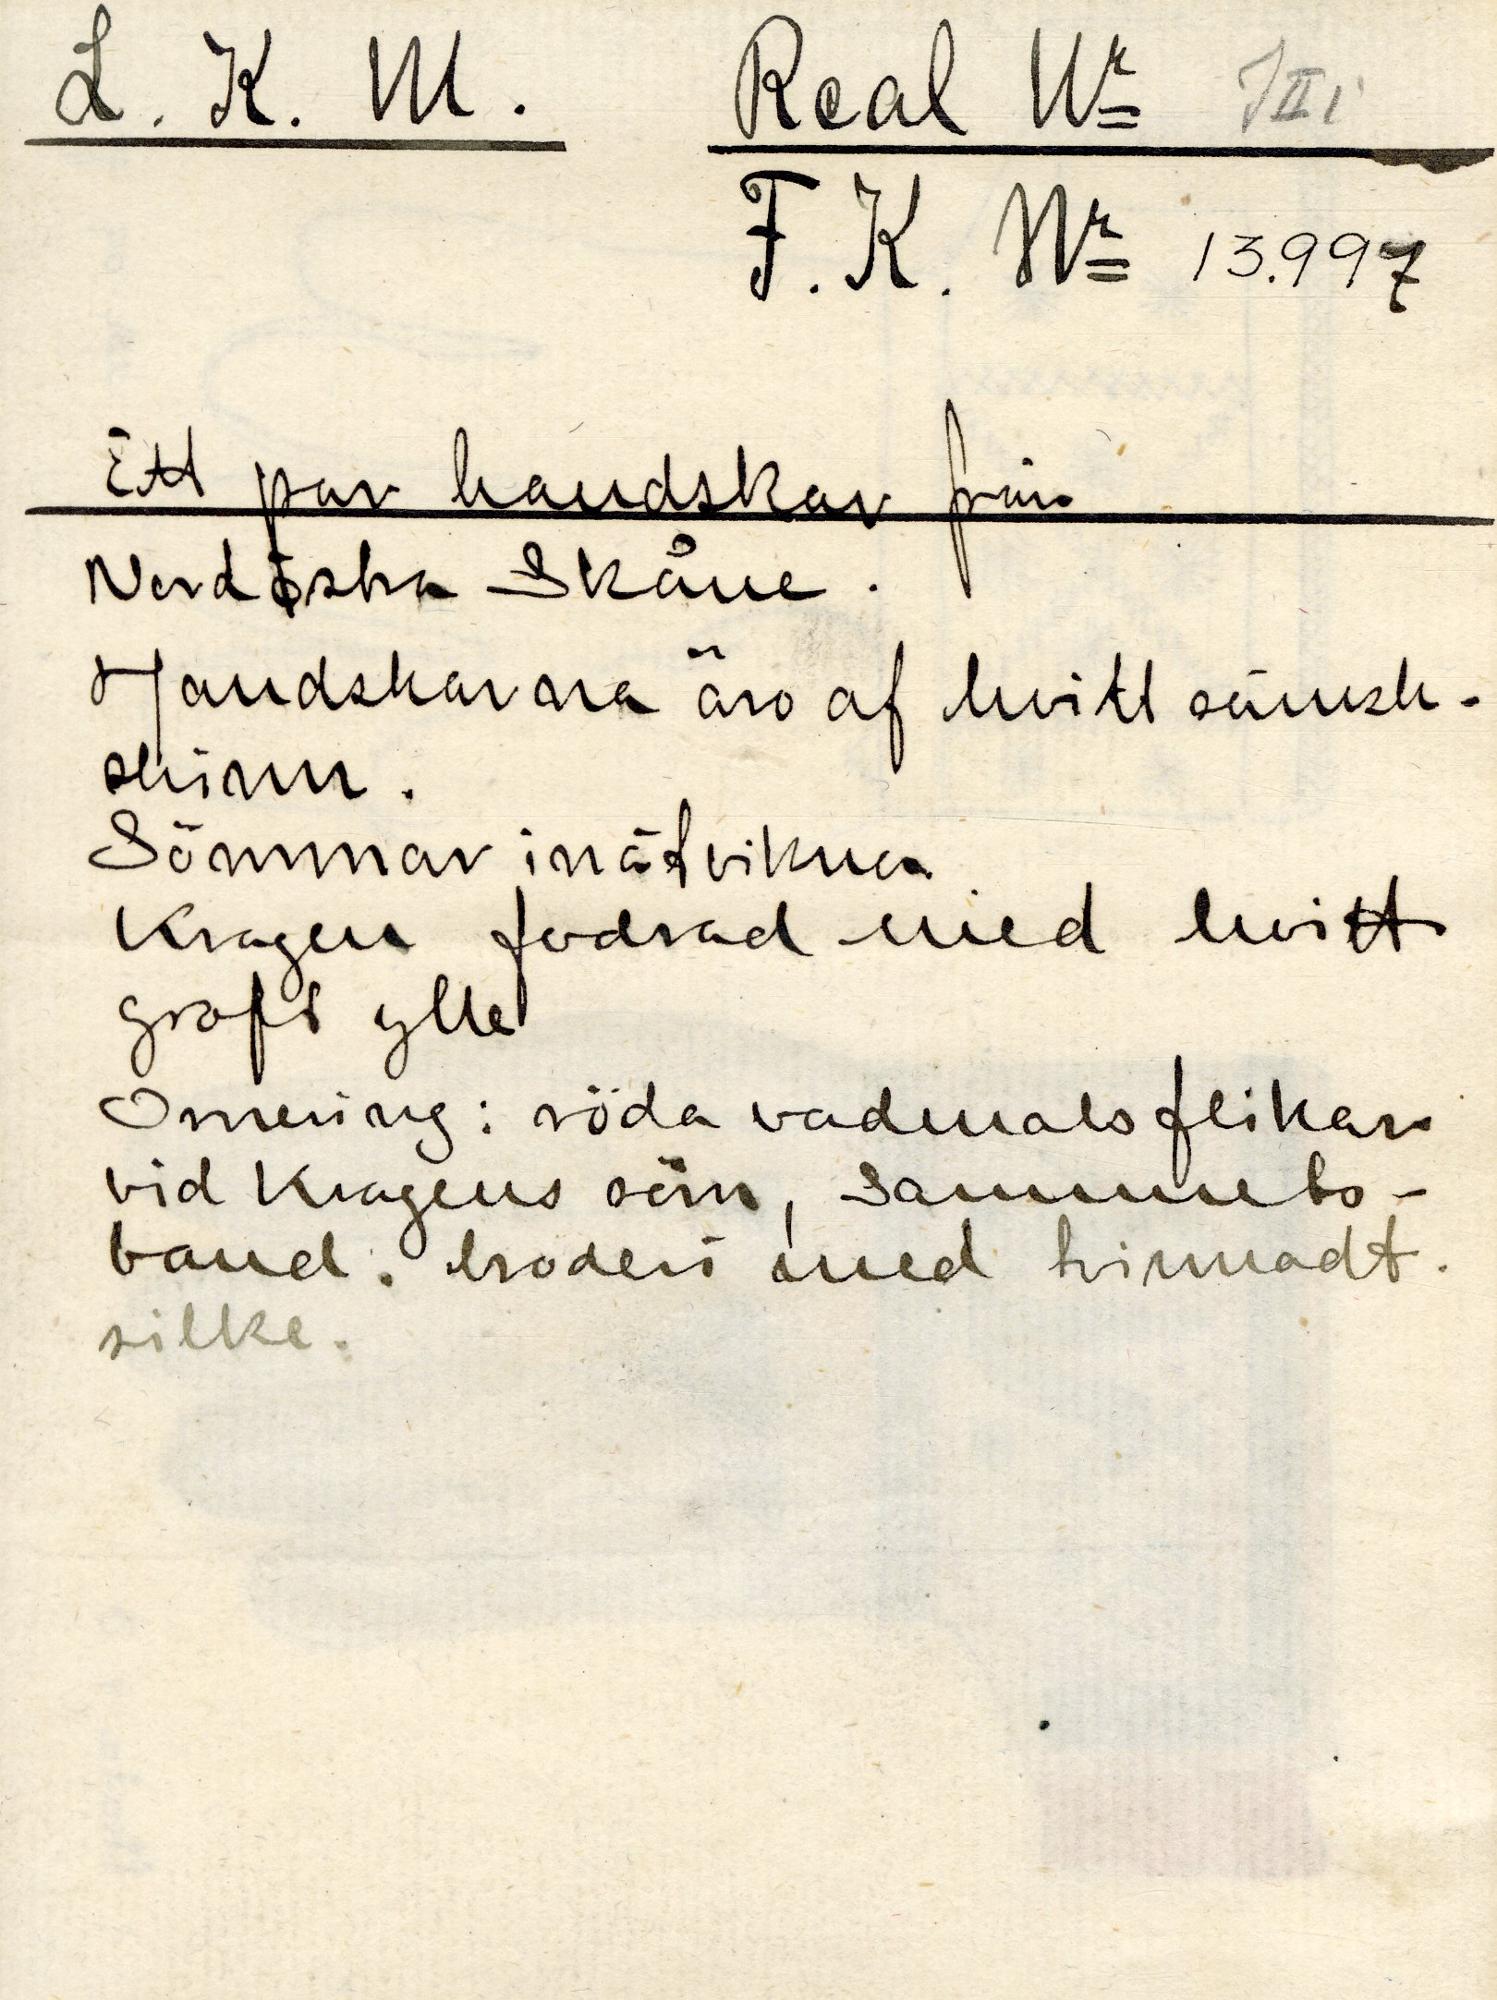 L. K. M.
Real Nr
F. K. Nr 13.997
Ett par handskar från
Nordöstra Skåne.
Handskarna äro af hvitt sämsk-
skinn.
Sömmar inåtvikna
Kragen fodrad med hvitt
groft ylle
Ornering: röda vadmalsflikar
vid kragens söm, Sammets-
band. broderi med tvinnadt.
silke.